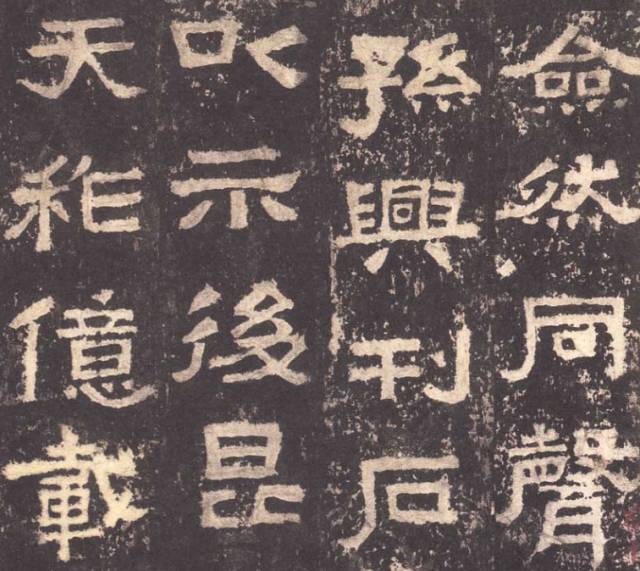 僉然同聲
孫興刊石
以示後昆
天祚億載